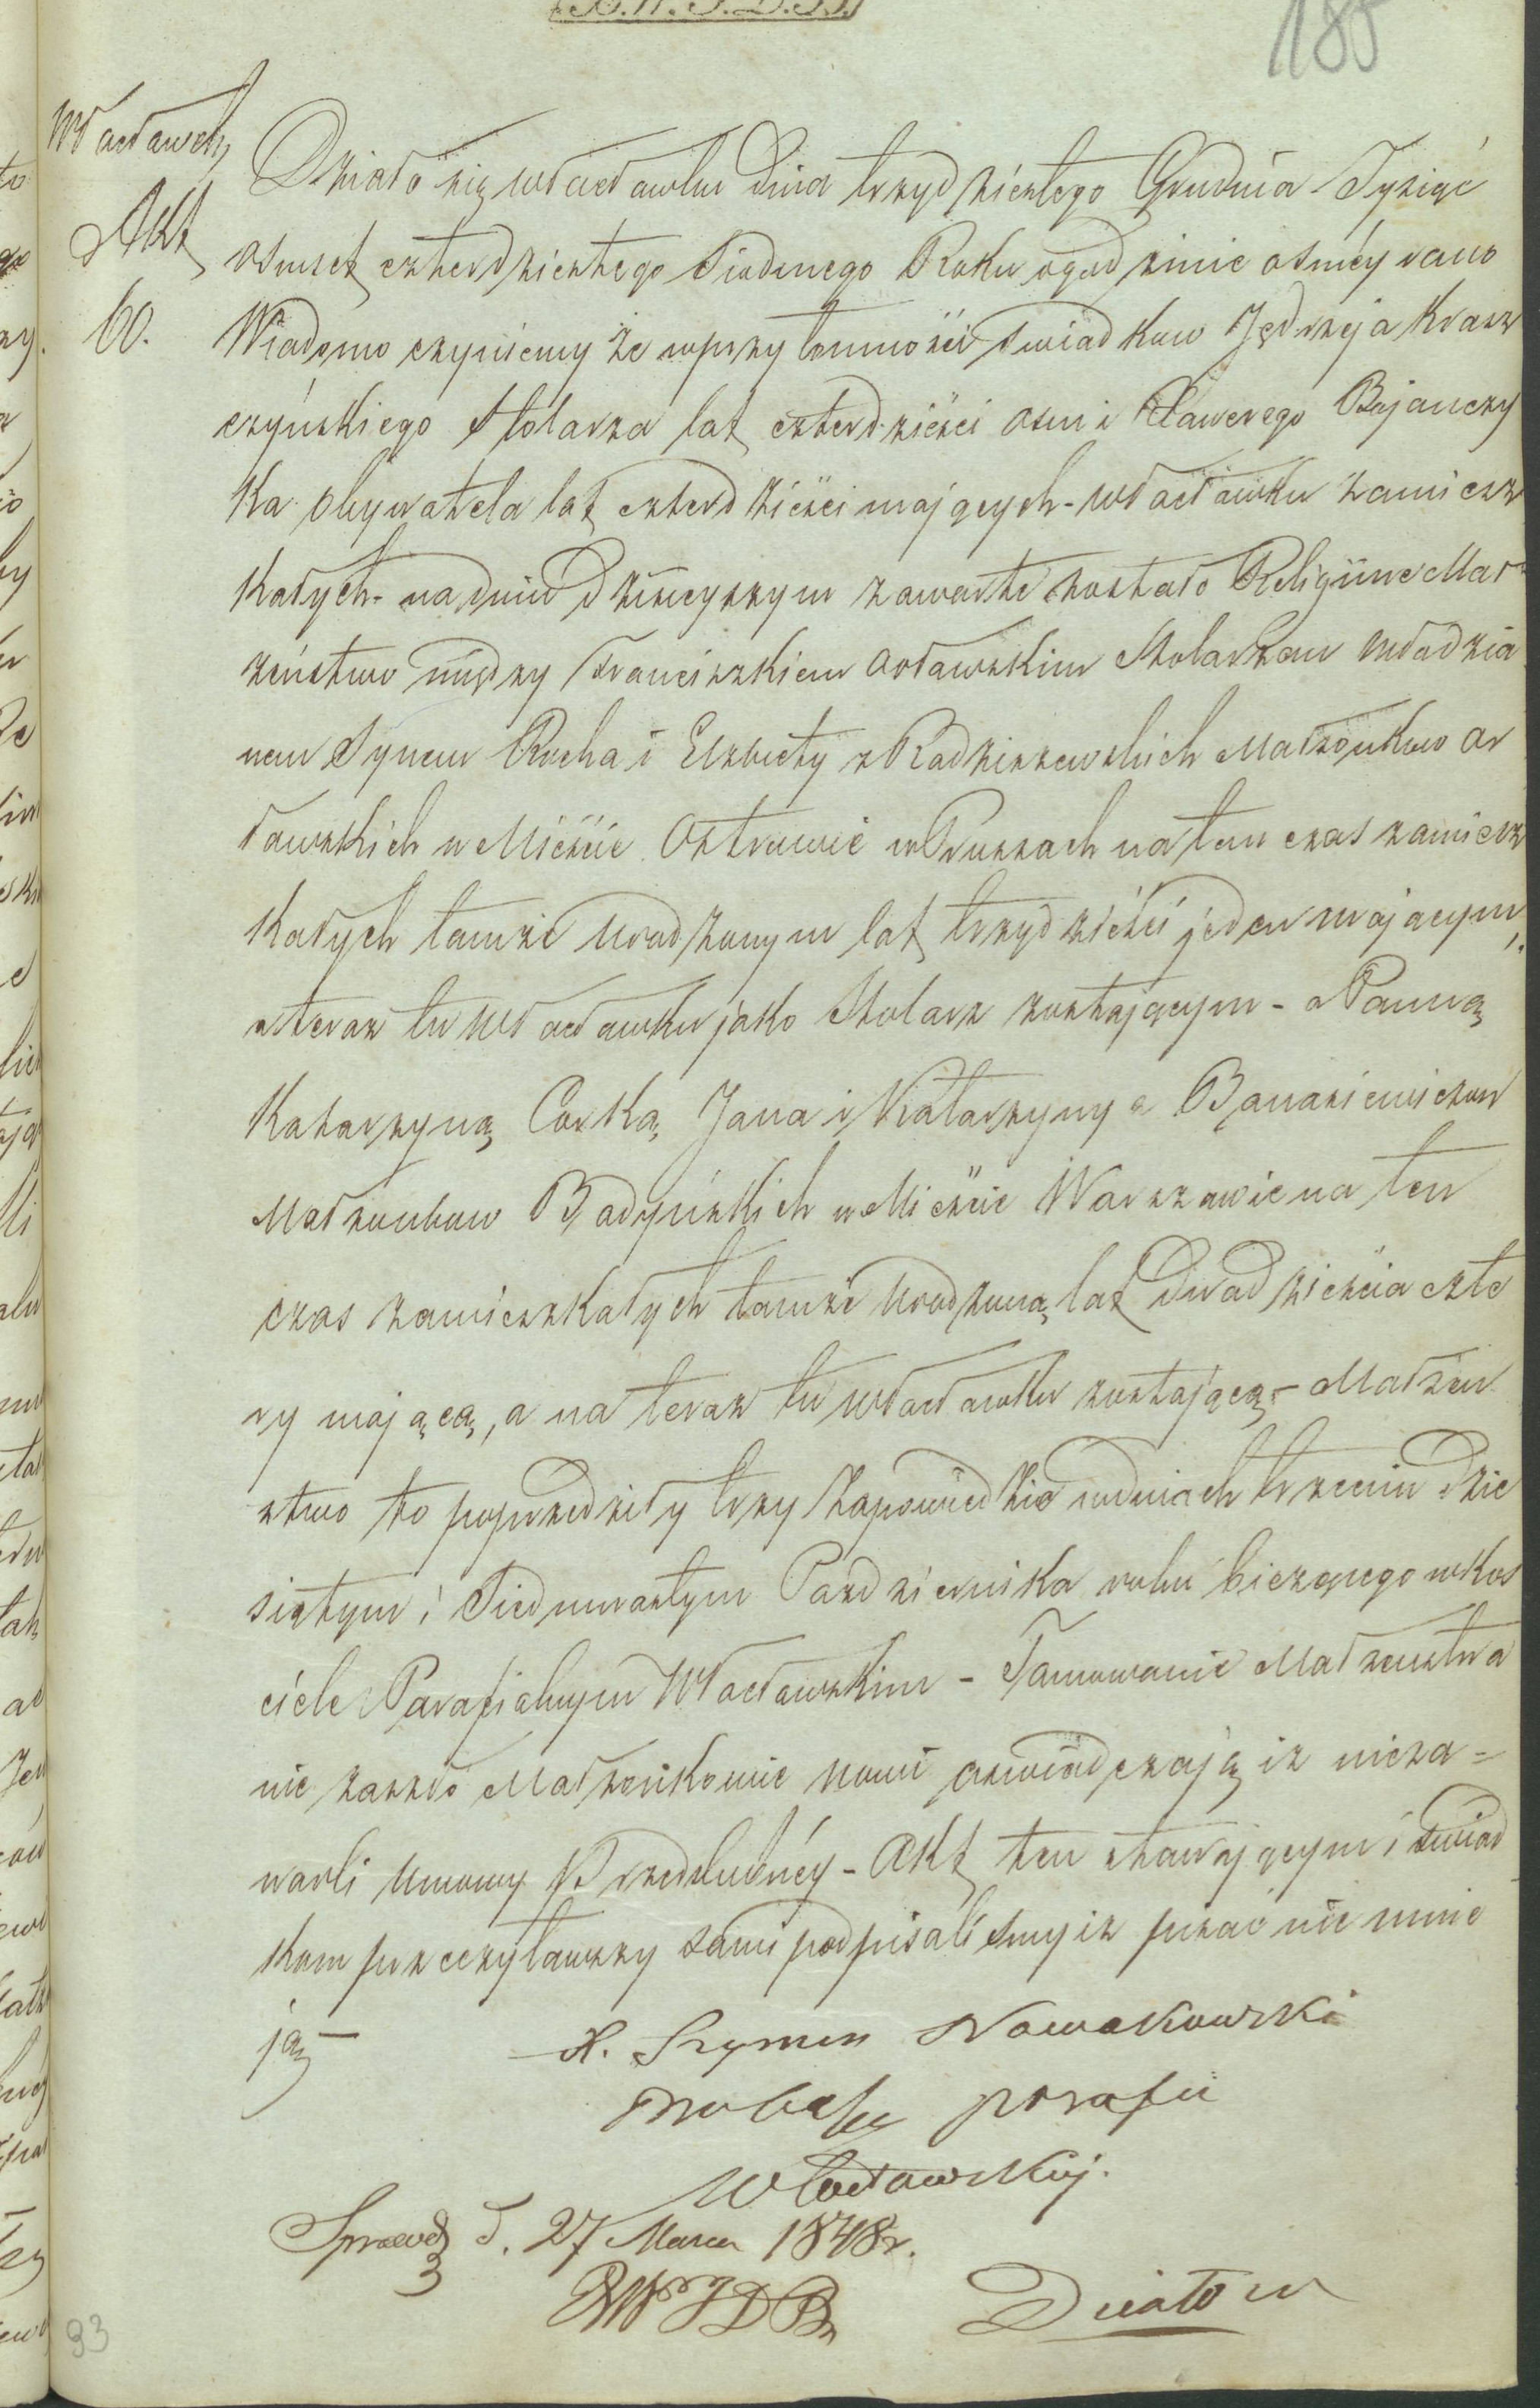 185
Włocławek
Akt
60.
Działo się Włocławku dnia trzydziestego Grudnia Tysiąc
osmset czterdziestego Siodmego Roku ogodzinie osméy rano
Wiadomo czyniemy że wprzytomności Swiadkow Jędrzeja Krasz
czyńskiego Stolarza lat czterdzieści osm i Xawerego Bojanczy
ka obywatela lat czterdzieści mających - Włocławku zamiesz
kałych - na dniu dzisieyszym zawarte zostało Religiine Mał
żeństwo między Franciszkiem Orławskim Stolarzem Młodzia
nem Synem Rocha i Elzbiety z Radziszewskich Małżonkow Or
ławskich w Mieście Ostrowie w Prussach na ten czas zamiesz
kałych tamże Urodzonym lat trzydzieści jeden mającym,
a teraz tu Włocławku jako Stolarz zostającym - a Panną
Katarzyną Corką Jana i Katarzyny z Banasiewiczow
Małżonkow Badyńskich w Mieście Warszawie na ten
czas zamieszkałych tamże Urodzoną lat Dwadzieścia czte
ry mającą, a na teraz tu Włocławku zostającą - Małżeń
stwo to poprzedziły trzy Zapowiedzie wdniach trzecim dzie
siątym i Siedmnastym Pazdziernika roku biezącego wkos
ciele Parafialnym Włocławskim - Tamowanie Małzenstwa
nie zaszło Małżonkowie nowi oswiadczają iz nieza=
warli Umowy Przedslubnéy - Akt ten stawającym i Swiad
kom przeczytawszy sami podpisalismy iz pisać nie umie
ją -
X. Szymon Nowakowski
Proboszcz parafii
Włocławskiej.
Sprawdz d. 27 Marca 1848 r.
93